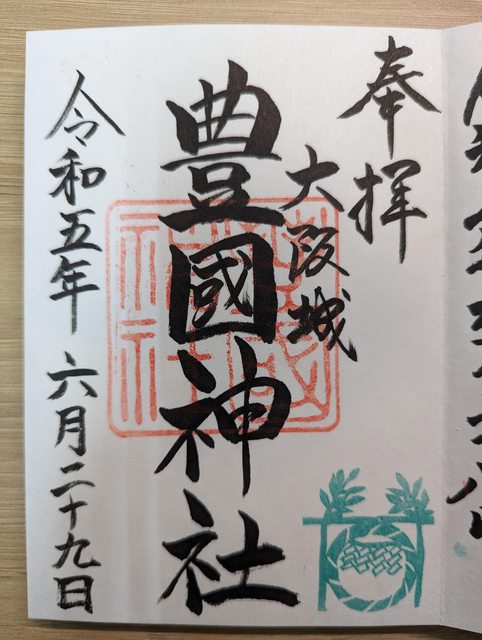 奉拝
大阪城
豊國神社
令和五年六月二十九日